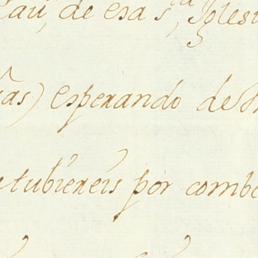 de esa s.ta Igles
as) esperando de
tubiereis por comb